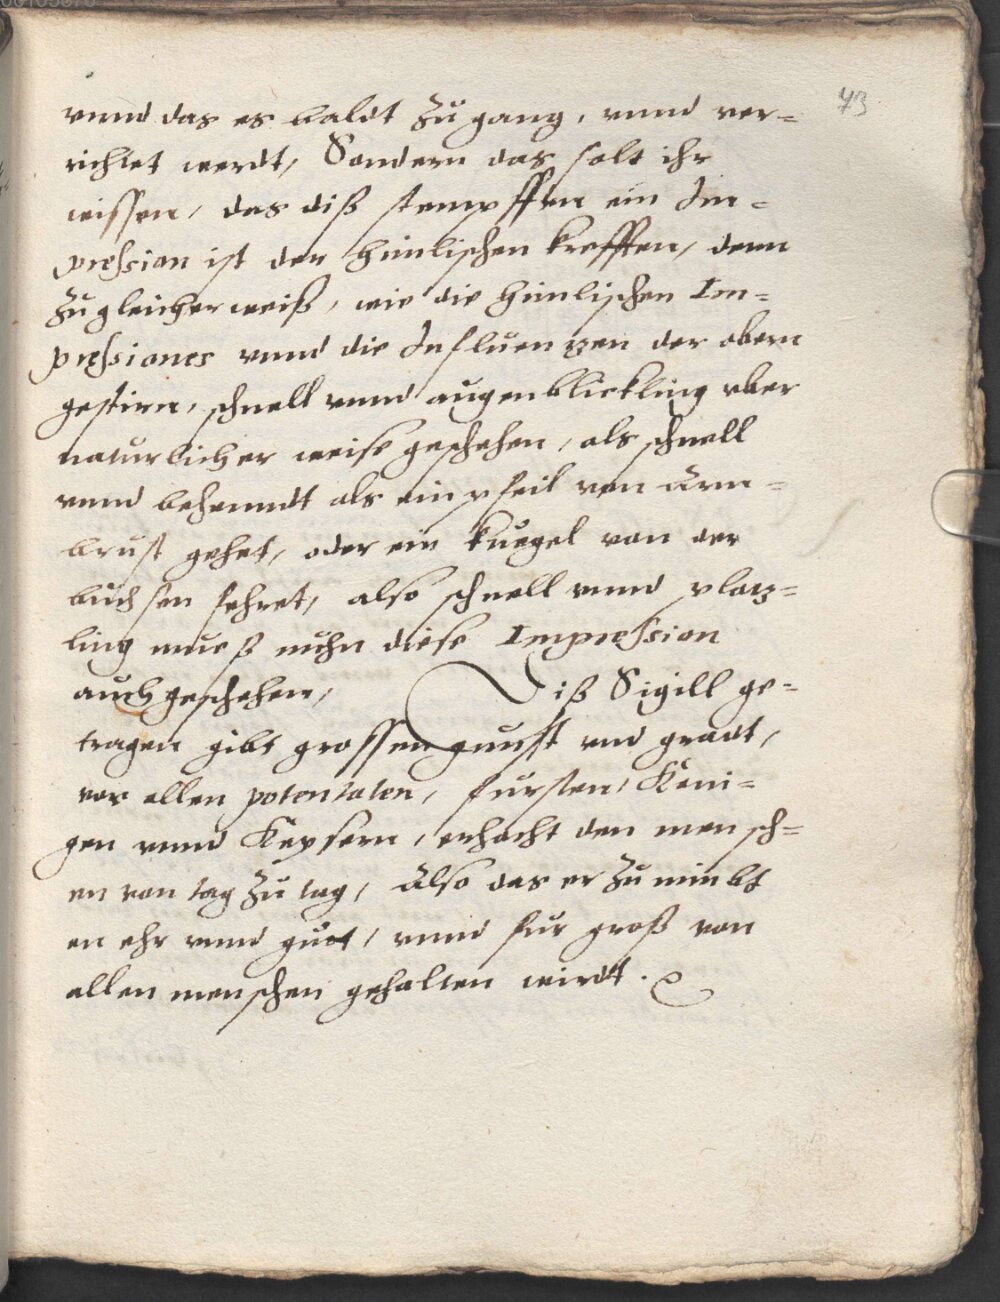 73
vnnd das es baldt zu gang, vnnd ver=
richtet werdt, Sondern das solt ihr
wissen, das diß stempffen ein Im=
pression ist der himlischen krefften, denn
zu gleicher weiß, wie die himlischen Im=
pressiones vnnd die Influentzen der obern
gestirn, schnell vnnd augenblickling vber
naturlicher weise geschehen, als schnell
vnnd behenndt als ein pfeil von Arm=
brust gehet, oder ein kuegel von der
buchsen fehret, also schnell vnnd plotz=
ling mueß nuhn diese Impression
auch geschehen, Diß Sigill ge=
tragen gibt grossen gunst vnd gnadt,
vor allen potentaten, fursten, Köni=
gen vnnd Keysern, erhocht den mensch=
en von tag zu tag, Also das er zunimbt
an ehr vnnd guet, vnnd fur groß von
allen menschen gehalten wirdt.